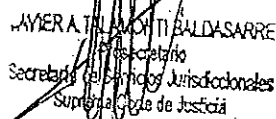 JAVIER A. TALAMONTI BALDASARRE
Prosecretario
Secretaría de Servicios Jurisdiccionales
Suprema Corte de Justicia